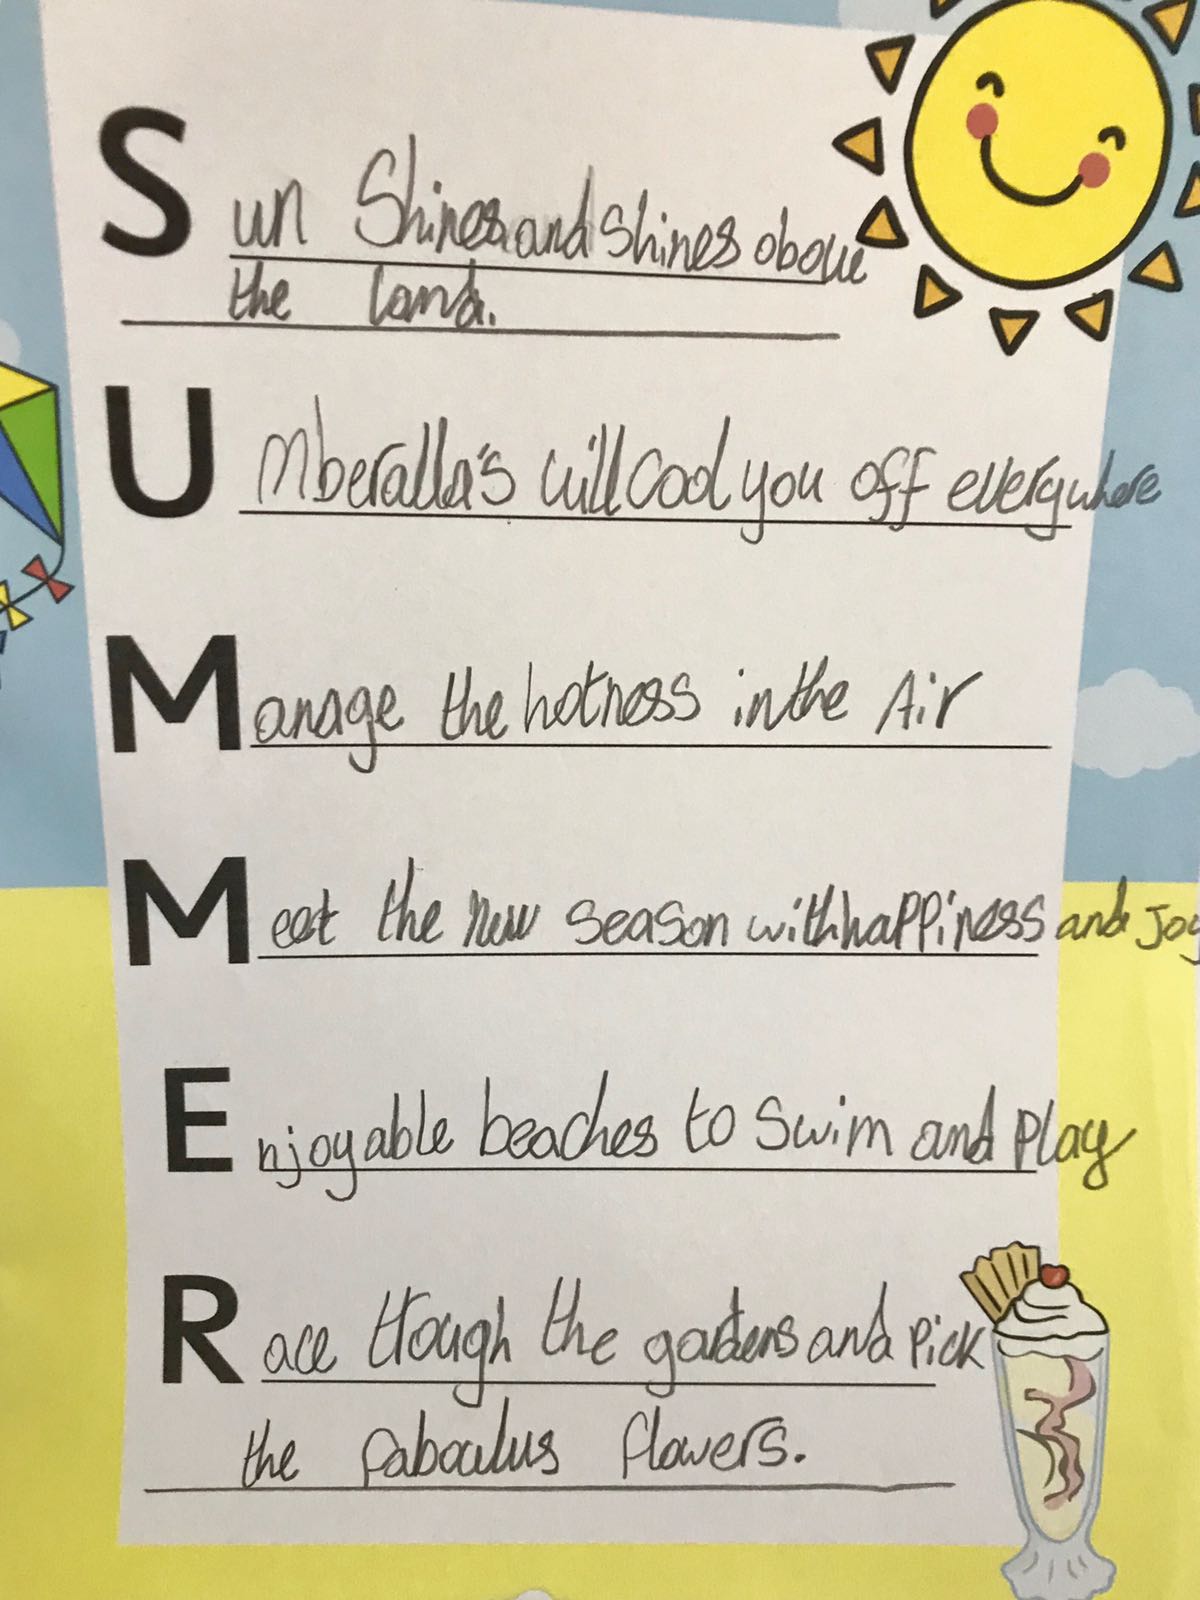 Sun Shines and Shines obove
the land.
Umberalla's will cool you off everywhere
Manage the hotness in the Air
Meet the new season with happiness and Joy
Enjoyable beaches to swim and play
Race though the gardens and Pick
the faboulus flowers.